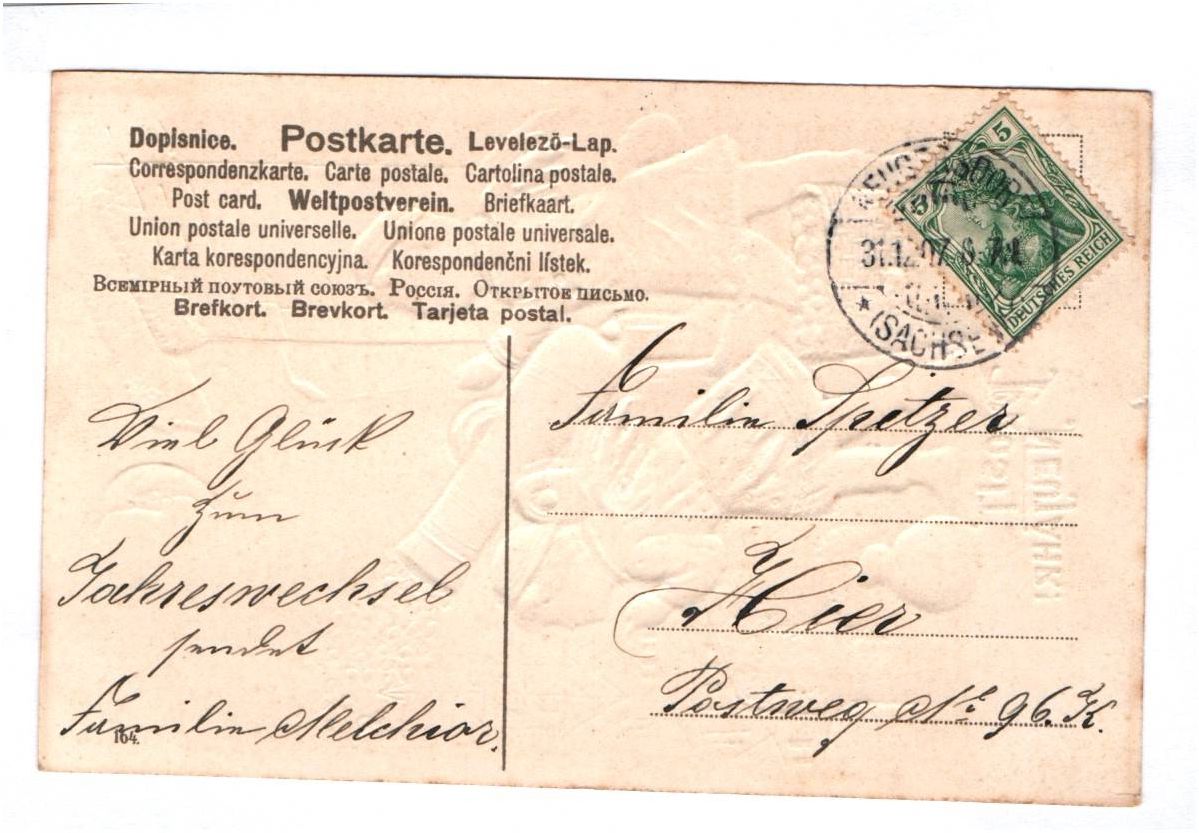 Dopisnice. Postkarte. Levelező-Lap.
Correspondenzkarte. Carte postale. Cartolina postale.
Post card. Weltpostverein. Briefkaart.
Union postale universelle. Unione postale universale.
Karta korespondencyjna. Korespondenčni lístek.
Всемірный поутовый союзъ. Россія. Открытое письмо.
Brefkort. Brevkort. Tarjeta postal.
5
5
DEUTSCHES REICH
31.12.07.
(SACHSE
Viel Glück
zum
Jahreswechsel
sendet
Familie Melchior.
164.
Familie Spetzer
Hier
Postweg No 96. K.